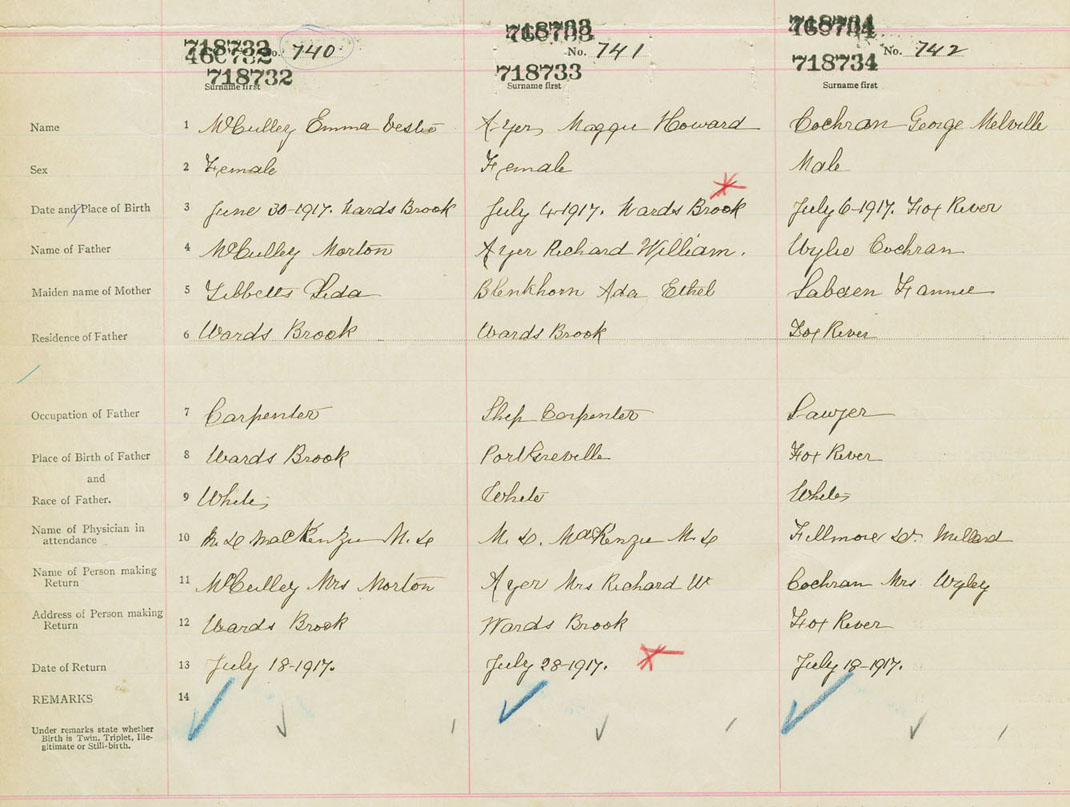 718732 718733 718734
No. 740 No. 741 No. 742
718732 718733 718734
Surname first Surname first Surname first
Name 1 McCulley Emma Ayer, Maggie Howard Cochran George Melville
Sex 2 Female Female Male
Date and Place of Birth 3 June 30-1917. Wards Brook July 4-1917. Wards Brook July 6-1917. Fox River
Name of Father 4 McCulley Morton Ayer Richard William. Wylie Cochran
Maiden name of Mother 5 Tibbetts Lida Blenkhorn Ada Ethel Fannie
Residence of Father 6 Wards Brook Wards Brook Fox River
Occupation of Father 7 Carpenter Ship Carpenter Sawyer
Place of Birth of Father 8 Wards Brook Port Greville Fox River
and
Race of Father. 9 White White White
Name of Physician in
attendance 10 MacKenzie M.D. MacKenzie M.D. Fillmore Dr. Millard
Name of Person making
Return 11 McCulley Mrs Morton Ayer Mrs Richard W Cochran Mrs Wyley
Address of Person making
Return 12 Wards Brook Wards Brook Fox River
Date of Return 13 July 18-1917. July 28-1917. July 18-1917.
REMARKS 14
Under remarks state whether
Birth is Twin, Triplet, Ille-
gitimate or Still-birth.